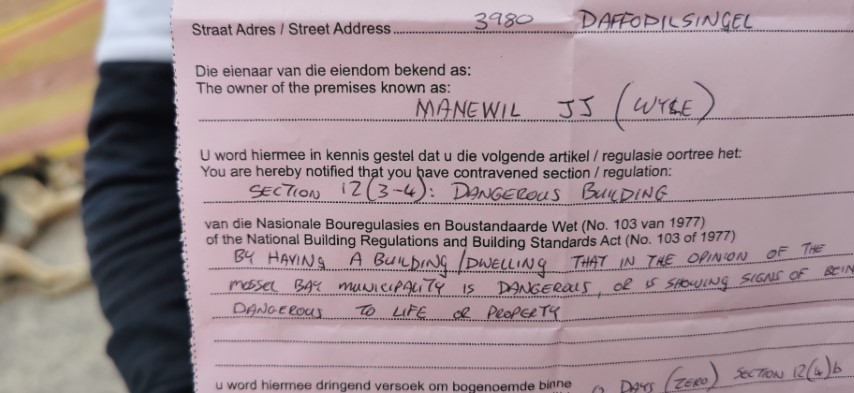 Straat Adres / Street Address 3980 DAFFODILSINGEL
Die eienaar van die eiendom bekend as:
The owner of the premises known as:
MANEWIL JJ (WYLE)
U word hiermee in kennis gestel dat u die volgende artikel / regulasie oortree het:
You are hereby notified that you have contravened section / regulation:
SECTION 12(3-4): DANGEROUS BUILDING
van die Nasionale Bouregulasies en Boustandaarde Wet (No. 103 van 1977)
of the National Building Regulations and Building Standards Act (No. 103 of 1977)
BY HAVING A BUILDING/DWELLING THAT IN THE OPINION OF THE
MOSSEL BAY MUNICIPALITY IS DANGEROUS, OR IS SHOWING SIGNS OF BEIN
DANGEROUS TO LIFE OR PROPERTY
u word hiermee dringend versoek om bogenoemde binne 0 DAYS (ZERO) SECTION 12(4)b